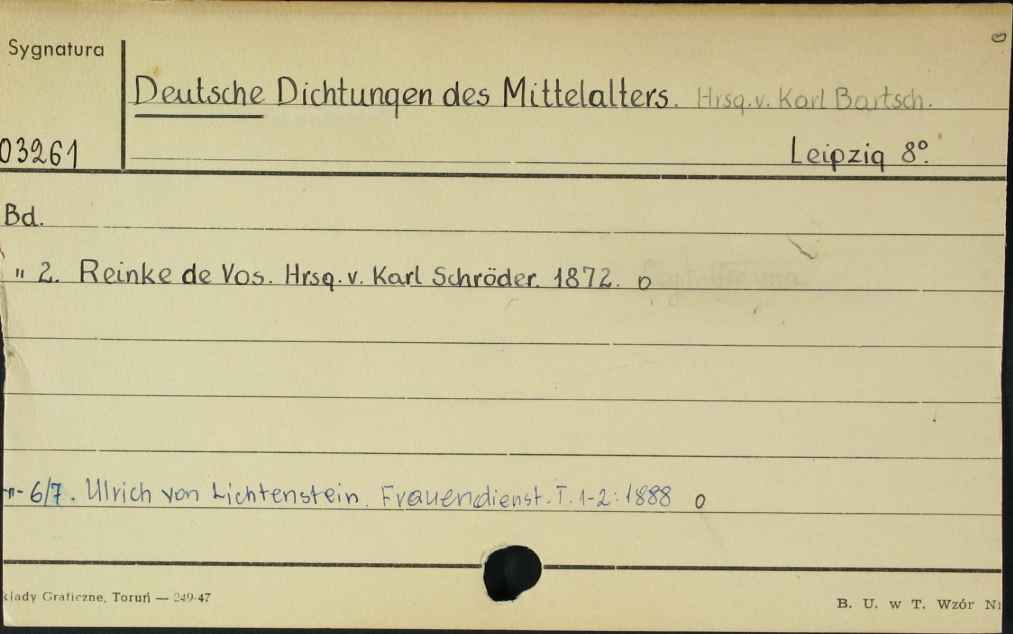 Sygnatura
Deutsche Dichtungen des Mittelalters. Hrsg. v. Karl Bartsch.
03261
Leipzig 8°.
Bd.
" 2. Reinke de Vos. Hrsg. v. Karl Schröder. 1872. o
-"- 6/7. Ulrich von Lichtenstein. Frauendienst. T. 1-2: 1888 o
kłady Graficzne, Toruń — 249-47
B. U. w T. Wzór Nr